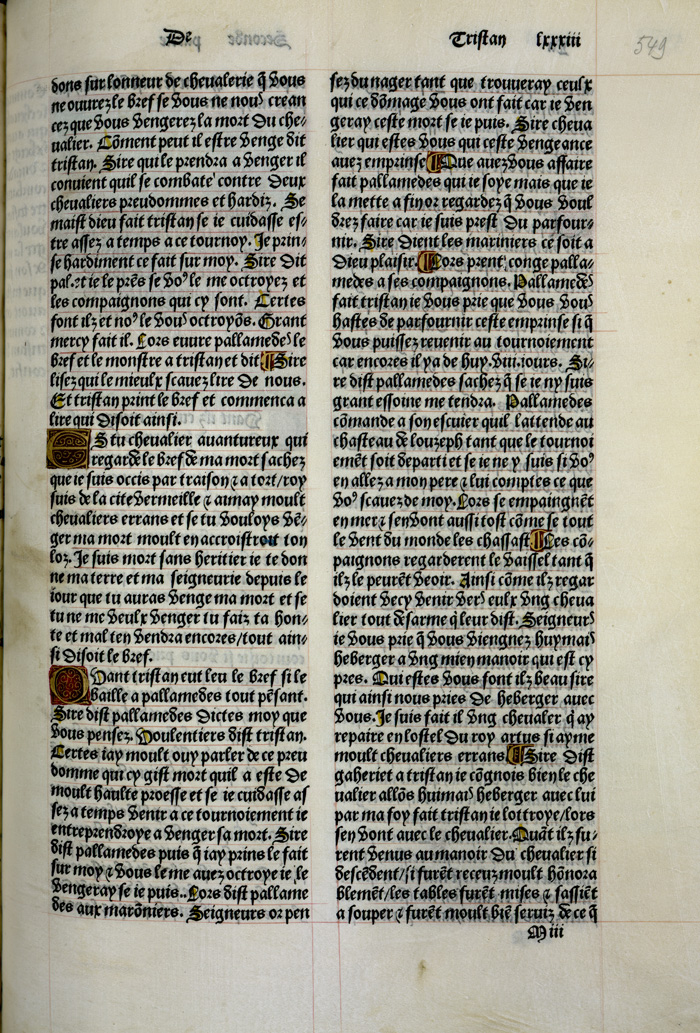 De
Tristan lxxxiii
549
dons sur lonneur de chevalerie q̃ vous
ne ouvrez le bref se vous ne nouˀ crean
cez que vous vengerez la mort du che⸗
ualier. Cõment peut il estre venge dit
tristan. Sire qui le prendra a venger il
conuient quil se combate contre deux
chevaliers preudommes et hardiz. Se
maist dieu fait tristan se ie cuidasse es⸗
tre assez a temps a ce tournoy. Je prin⸗
se hardiment ce fait sur moy. Sire dit
pal. ⁊t ie le prẽs se voˀ le me octroyez et
les compaignons qui cy sont. Certes
font ilz et noˀ le vouˀ octroyõs. Grant
mercy fait il. Lors euure pallamedeˀ le
bref et le monstre a tristan et dit Sire
lisez qui le mieulx scauez lire de nous.
Et tristan print le bref et commenca a
lire qui disoit ainsi.
S tu chevalier auantureux qui
regarde le bref de ma mort sachez
que ie suis occis par traison ⁊ a tort/roy
suis de la cite vermeille ⁊ aimay moult
chevaliers errans et se tu vouloys vẽ⸗
ger ma mort moult en accroistroit ton
loz. Je suis mort sans heritier ie te don
ne ma terre et ma seigneurie depuis le
iour que tu auras venge ma mort et se
tu ne me veulx venger tu faiz ta hon⸗
te et mal ten vendra encores/tout ain⸗
si disoit le bref.
Quant tristan eut leu le bref si le
baille a pallamedes tout pẽsant.
Sire dist pallamedes dictes moy que
vous pensez. Doulentiers dist tristan.
Certes iay moult ouy parler de ce preu
domme qui cy gist mort quil a este de
moult haulte proesse et se ie cuidasse as
sez a temps venir a ce tournoiement ie
entreprendroye a venger sa mort. Sire
dist pallamedes puis q̃ iay prins le fait
sur moy ⁊ vous le me auez octroye ie le
vengeray se ie puis.. Lors dist pallame
des aux marõniers. Seigneurs or pen
sez du nager tant que trouueray ceulx
qui ce dõmage vous ont fait car ie ven
geray ceste mort se ie puis. Sire cheua
lier qui estes vous qui ceste vengeance
auez emprinse Que auez vous affaire
fait pallamedes qui ie soye mais que ie
la mette a fin or regardez q̃ vous voul
drez faire car ie suis prest du parfour⸗
nir. Sire dient les mariniers ce soit a
dieu plaisir. Lors prent conge palla⸗
medes a ses compaignons. Pallamedeˀ
fait tristan ie vous prie que vous vouˀ
hastes de parfournir ceste emprinse si q̃
vous puissez reuenir au tournoiement
car encores il ya de huy .viii. iours. Si⸗
re dist pallamedes sachez q̃ se ie ny suis
grant essoine me tendra. Pallamedes
cõmande a son escuier quil lattende au
chasteau de louzeph tant que le tournoi
emẽt soit departi et se ie ne y suis si voˀ
en allez a mon pere ⁊ lui comptes ce que
voˀ scauez de moy. Lors se empaingnẽt
en mer ⁊ sen vont aussi tost cõme se tout
le vent du monde les chassast Les cõ⸗
paignons regarderent le vaissel tant q̃
ilz le peurẽt veoir. Ainsi cõme ilz regar
doient vecy venir verˀ eulx vng cheua
lier tout desarme q̃ leur dist. Seigneurˀ
ie vous prie q̃ vous viengnez huymaiˀ
heberger a vng mien manoir qui est cy
pres. Qui estes vous font ilz beau sire
qui ainsi nous pries de heberger avec
vous. Je suis fait il vng chevaler q̃ ay
repaire en lostel du roy artus si ayme
moult chevaliers errans Sire dist
gaheriet a tristan ie cõgnois bien le che
ualier allõs huimaiˀ heberger auec lui
par ma foy fait tristan ie lottroye/lors
sen vont avec le chevalier. Quãt ilz fu⸗
rent venus au manoir du chevalier si
descẽdent/si furẽt receuz moult hõnora
blemẽt/les tables furẽt mises ⁊ sassiẽt
a souper ⁊ furẽt moult biẽ seruiz de ce q̃
M iii